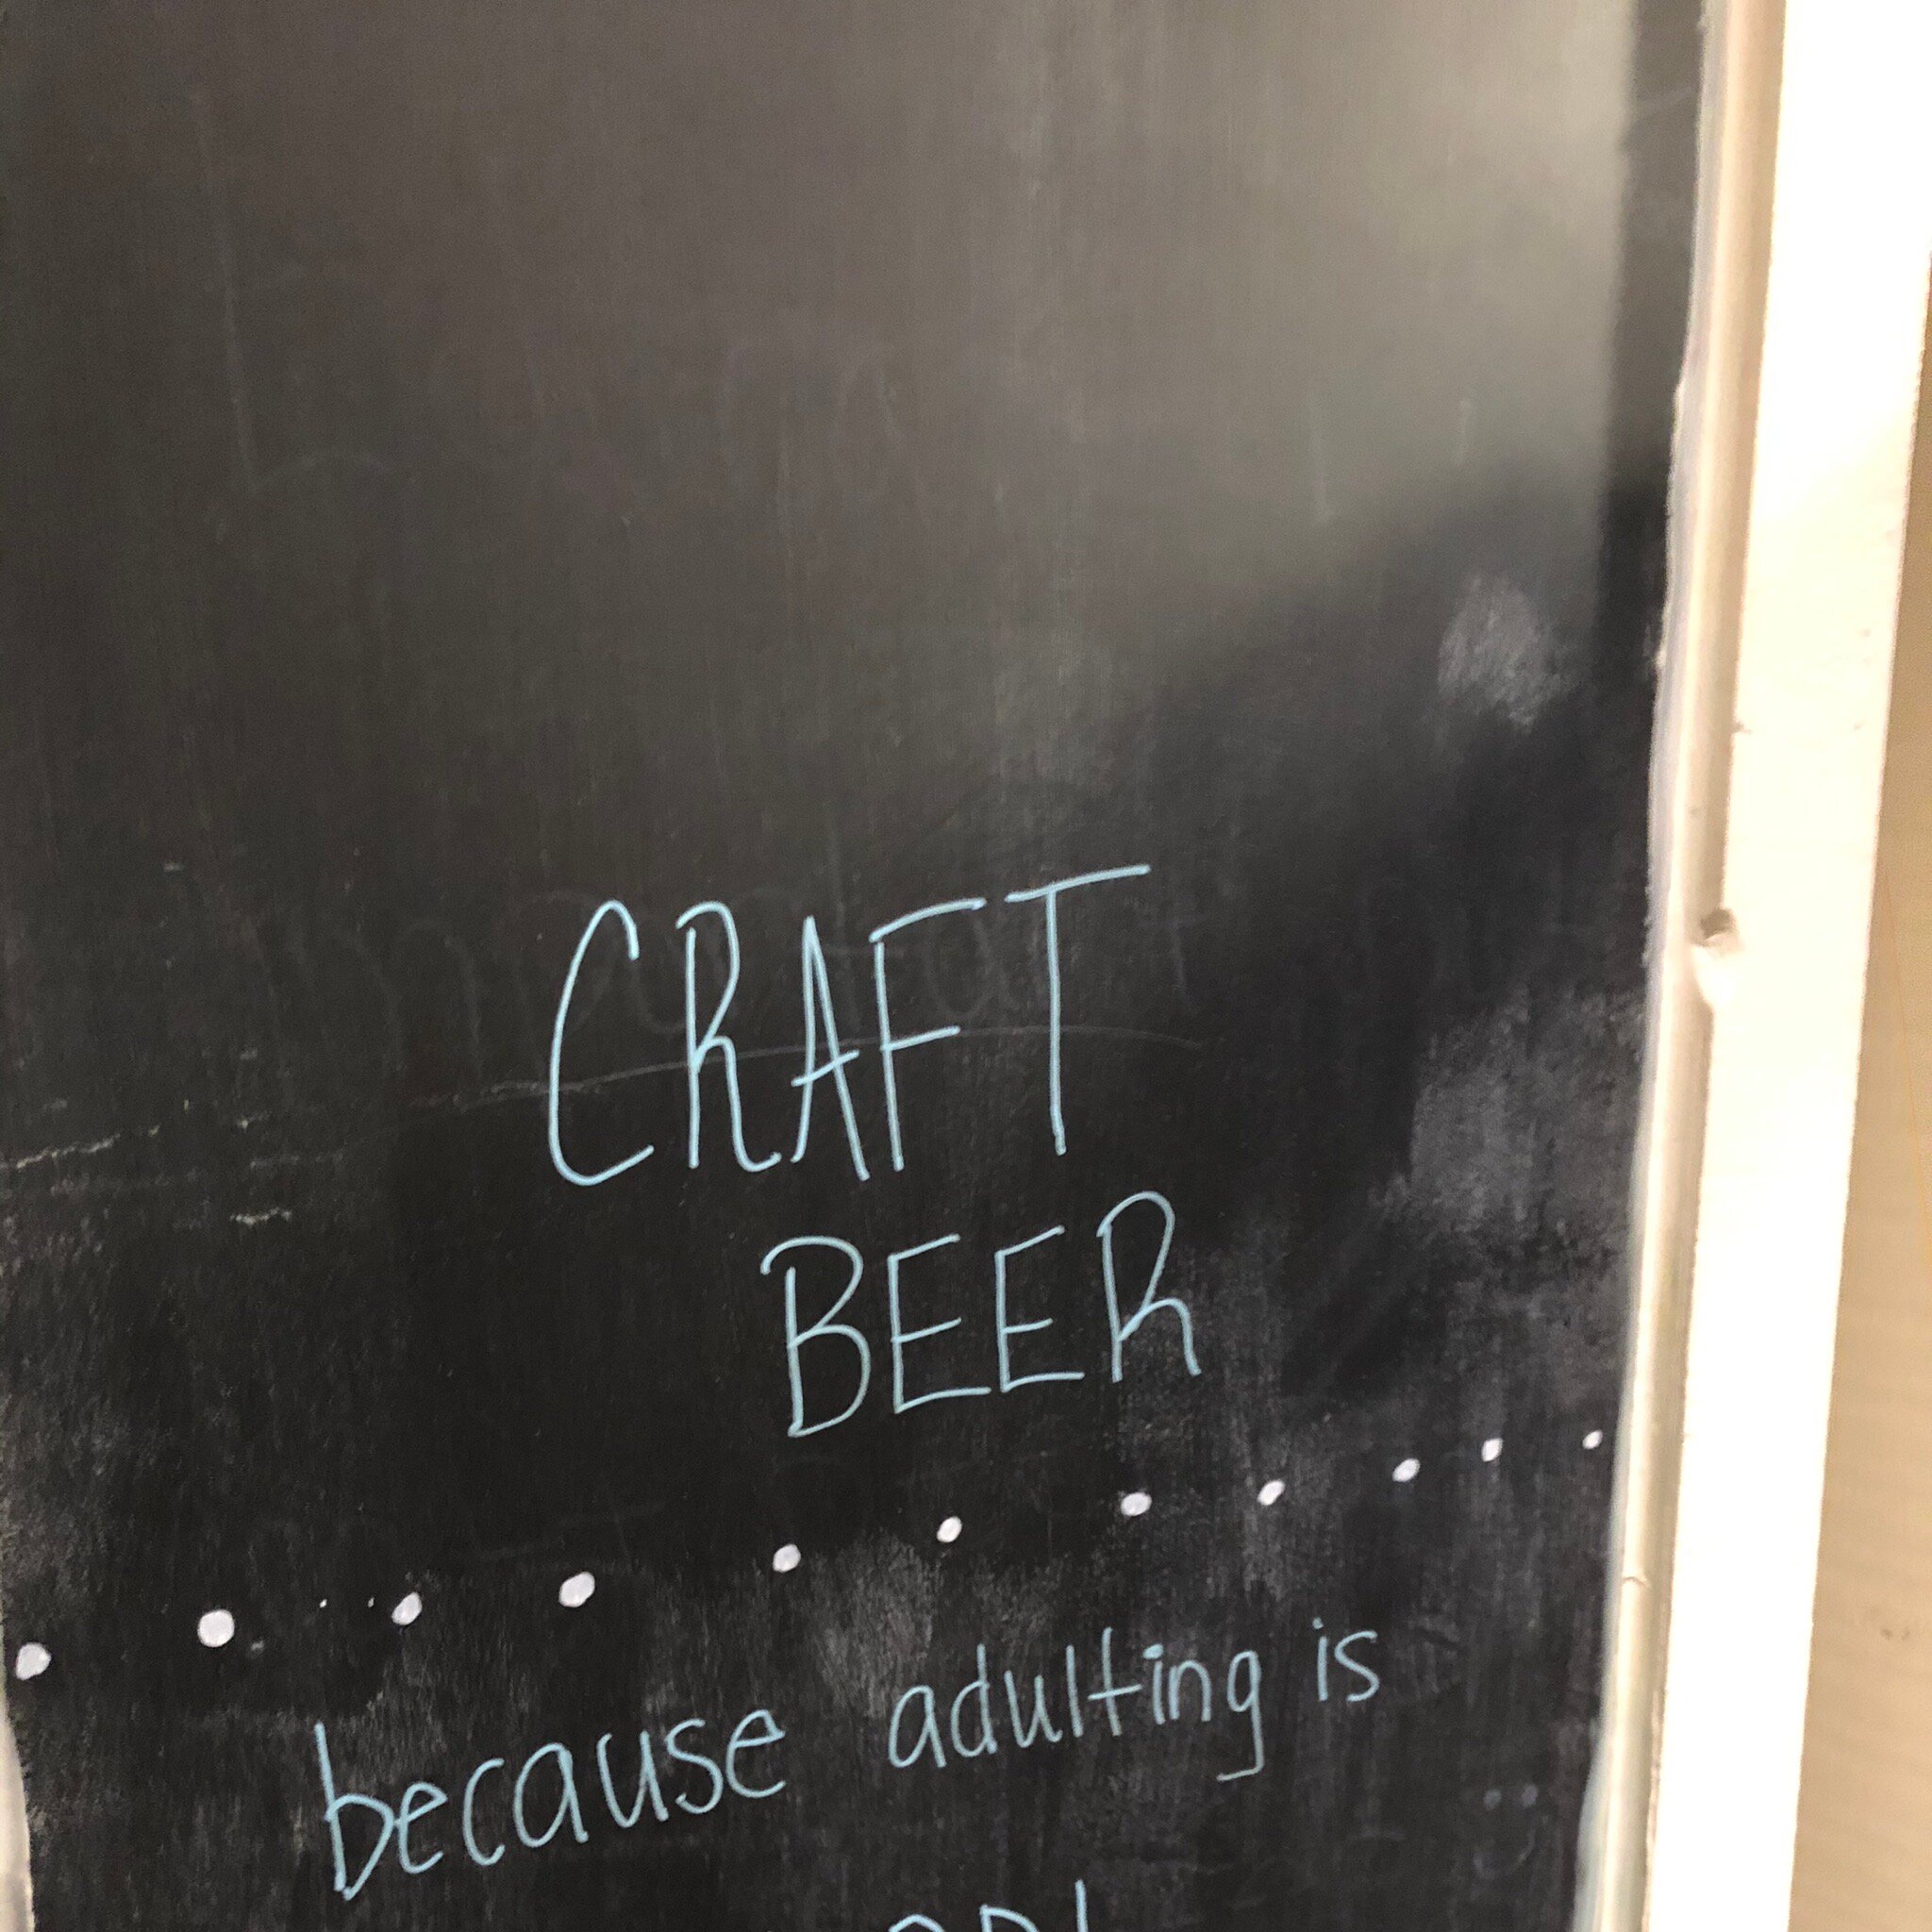 CRAFT
BEER
because adulting is